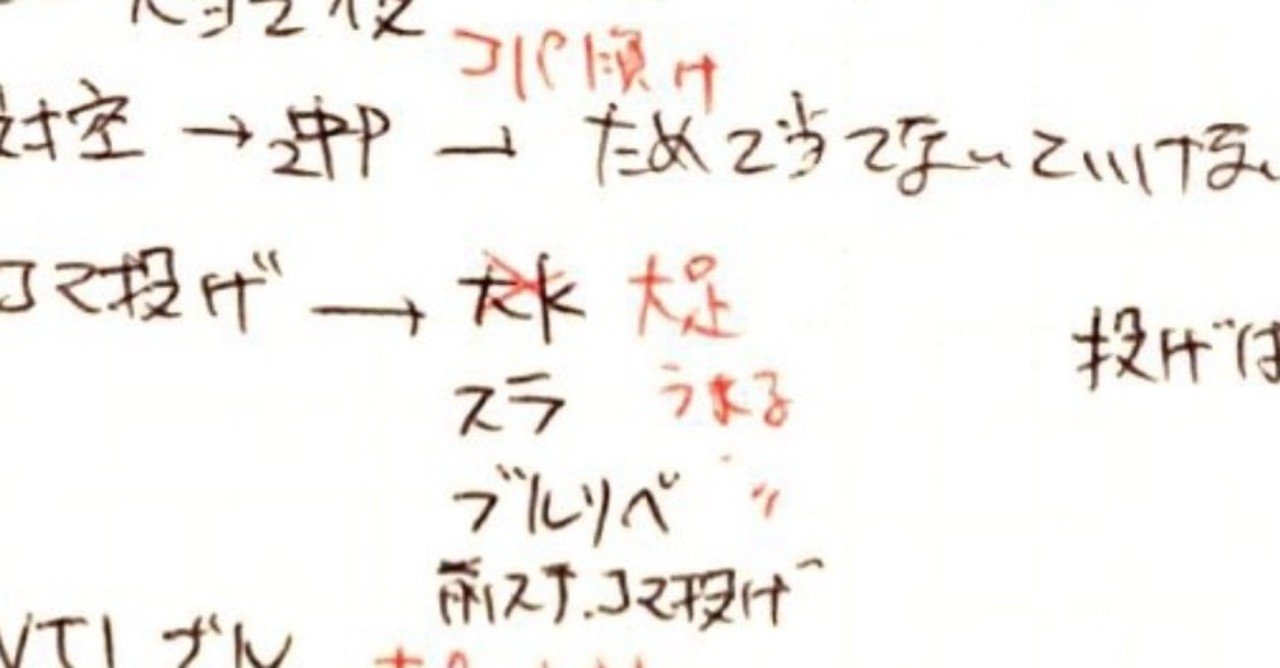 コパ傾け
対空 → 2中P → ためて当てないといけない
コマ投げ → 大K 大足
投げは
スラ うまる
ブルリベ 〃
前ステ.コマ投げ
VT1 ブル